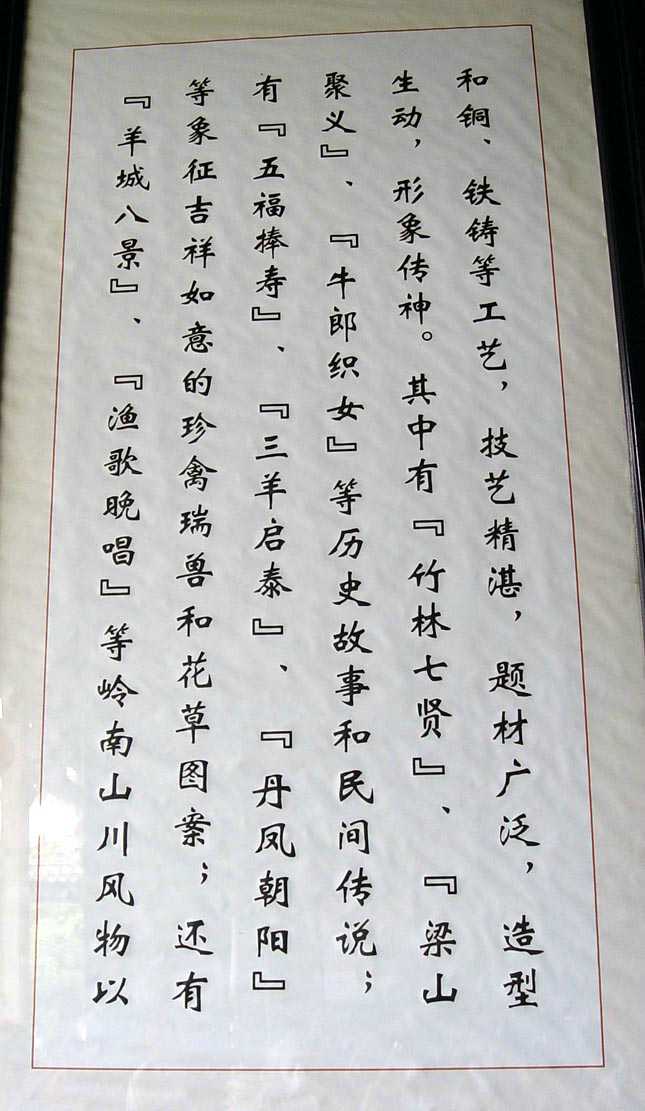 和铜、铁铸等工艺，技艺精湛，题材广泛，造型
生动，形象传神。其中有『竹林七贤』、『梁山
聚义』、『牛郎织女』等历史故事和民间传说；
有『五福捧寿』、『三羊启泰』、『丹凤朝阳』
等象征吉祥如意的珍禽瑞兽和花草图案；还有
『羊城八景』、『渔歌晚唱』等岭南山川风物以